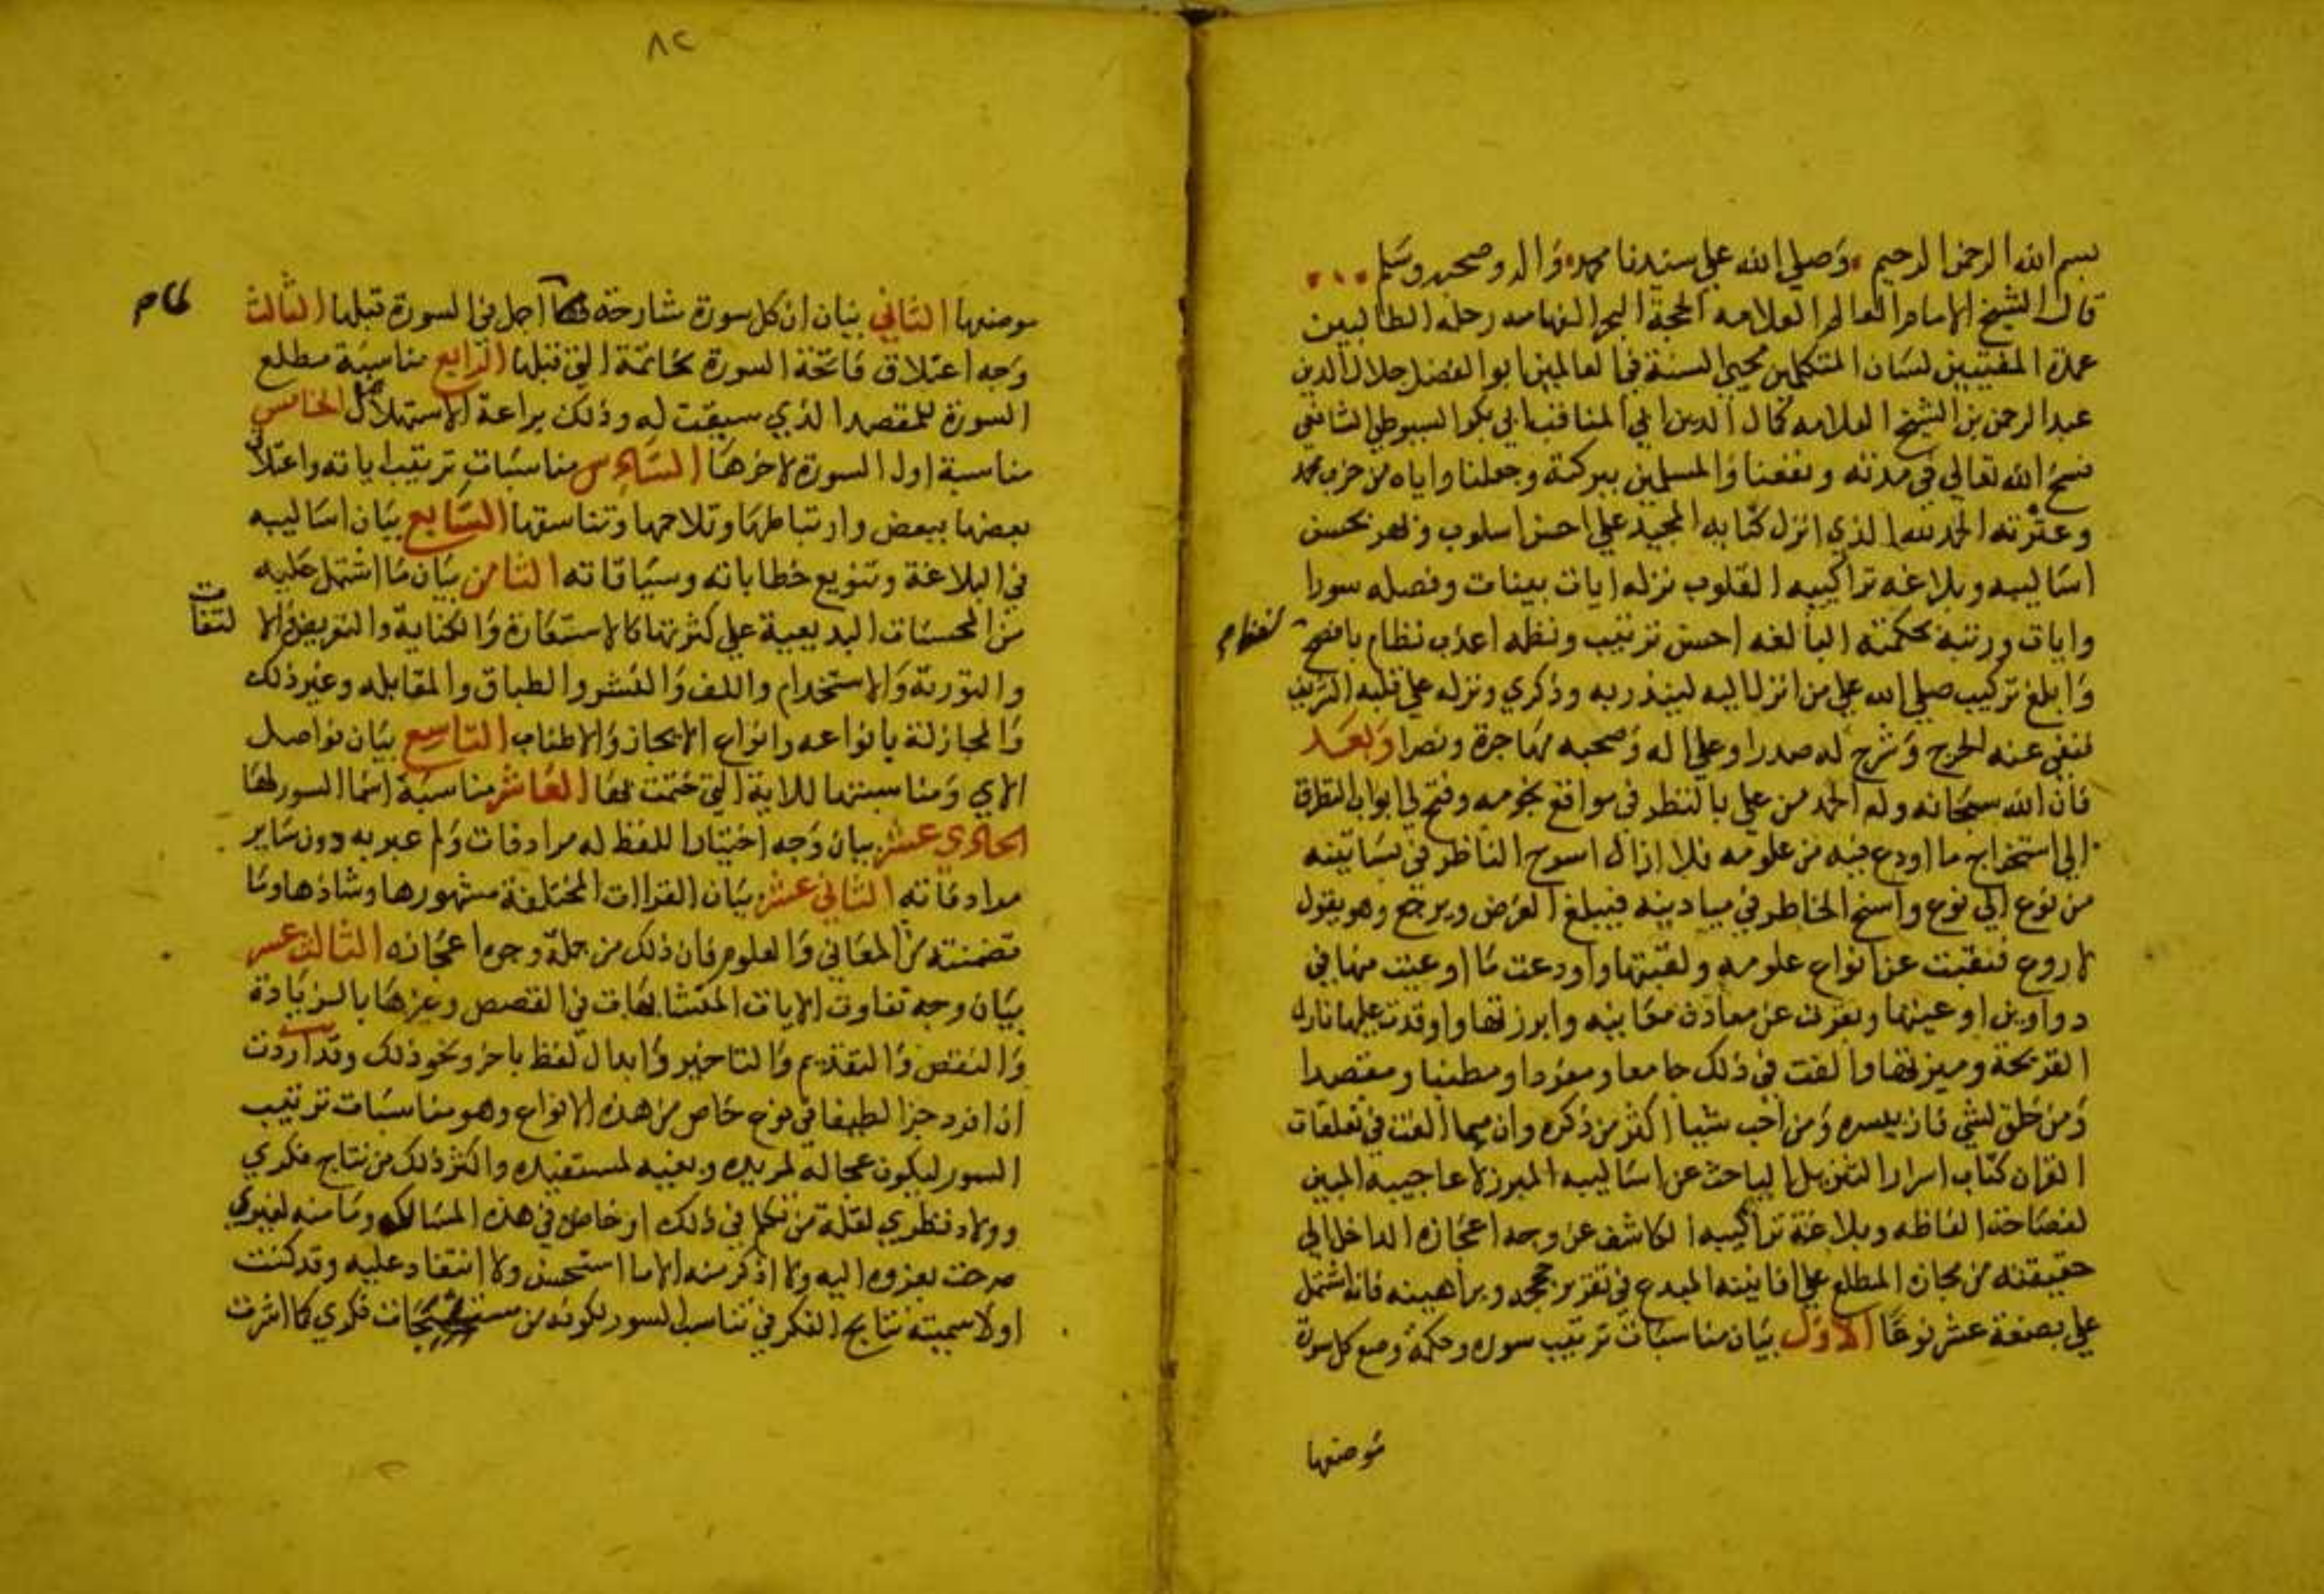 بسم الله الرحمن الرحيم وصلي الله علي سيدنا محمد واله وصحبه وسلم
قال الشيخ الامام العالم العلامه الحجة البحر الفهامه رحلة الطالبين
عمدة المفتيين لسان المتكلمين محيي السنة في العالمين ابو الفضل جلال الدين
عبد الرحمن بن الشيخ العلامه كمال الدين ابي المناقب ابي بكر السيوطي الشافعي
فسح الله تعالي في مدته ونفعنا والمسلمين ببركته وجعلنا واياه من حزب محمد
وعترته الحمد لله الذي انزل كتابه المجيد علي احسن اسلوب وبهر بحسن
اساليبه وبلاغه تراكيبه القلوب نزله ايات بينات وفصله سورا
وايات ورتبه بحكمته البالغه احسن ترتيب ونظمه اعذب نظام بافصح لفظ
وابلغ تركيب صلي الله علي من انزل اليه لينذر به وذكري ونزله علي قلبه الشريف
فنفي عنه الحرج وشرح له صدرا وعلي اله وصحبه مهاجرة ونصرا وبعد
فان الله سبحانه وله الحمد من علي بالنظر في مواقع نجومه وفتح لي ابواب التطرق
الي استخراج ما اودع فيه من علومه فلا ازال اسرح الناظر في بساتينه
من نوع الي نوع واسنح الخاطر في ميادينه فيبلغ الغرض ويرجع وهو يقول
لا روع فنقبت عن انواع علومه ولقبتها واودعت ما اوعيت منها في
دواوين اوعيتها ونقرت عن معادن معانيه وابرزتها واوقدت عليها نار
القريحة وميزتها والفت في ذلك جامعا ومفردا ومطنبا ومقتصدا
ومن خلق لشي فان ييسره ومن احب شيا اكثر من ذكره وان مما الفت في تعلقات
القران كتاب اسرار التنزيل الباحث عن اساليبه المبرز لاعاجيبه المبين
لفصاحة الفاظه وبلاغة تراكيبه الكاشف عن وجه اعجازه الداخل الي
حقيقته من مجازه المطلع علي افانينه المبدع في تقرير حججه وبراهينه فانه اشتمل
علي بضعة عشر نوعا الاول بيان مناسبات ترتيب سوره وحكمة وضع كل سورة
موضعها
٨٢
موضعها الثاني بيان ان كل سورة شارحة لما اجمل في السورة قبلها الثالث
وجه اعتلاق فاتحة السورة بخاتمة التي قبلها الرابع مناسبة مطلع
السورة للمقصد الذي سيقت له وذلك براعة الاستهلال الخامس
مناسبة اول السورة لاخرها السادس مناسبات ترتيب اياته واعتلاق
بعضها ببعض وارتباطها وتلاحمها وتناسقها السابع بيان اساليبه
في البلاغة وتنويع خطاباته وسياقاته الثامن بيان ما اشتمل عليه
من المحسنات البديعية علي كثرتها كالاستعارة والكناية والتعريض والا لتفات
والتورية والاستخدام واللف والنشر والطباق والمقابله وغير ذلك
والمجاز له بانواعه وانواع الايجاز والاطناب التاسع بيان فواصل
الاي ومناسبتها للاية التي ختمت بها العاشر مناسبة اسما السور لها
الحادي عشر بيان وجه اختيار اللفظ له مرادفات ولم عبر به دون ساير
مرادفاته الثاني عشر بيان القراات المختلفة مشهورها وشاذها وما
تضمنته من المعاني والعلوم فان ذلك من جملة وجوه اعجازه الثالث عشر
بيان وجه تفاوت الايات المتشابهات في القصص وغيرها بالزيادة
والنقص والتقديم والتاخير وابدال لفظ باخر ونحو ذلك وقد اردت
ان افرد جزا لطيفا في نوع خاص من هذه الانواع وهو مناسبات ترتيب
السور ليكون عجالة لمريده وبغيه لمستفيده واكثر ذلك من نتاج فكري
وولاد نظري لقلة من تكلم في ذلك او خاض في هذه المسالك وما منه لغيري
صرحت بعزوه اليه ولا اذكر منه الا ما استحسن ولا انتقاد عليه وقد كنت
اولا سميته نتايج الفكر في تناسب السور لكونه من مستنتجات فكري كما اشرت